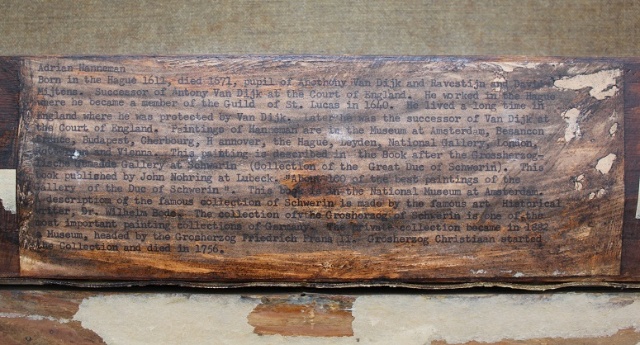 Adrian Hanneman
Born in the Hague 1611, died 1671, pupil of Anothony Van Dijk and Ravestijn and David
Mijtens. Successor of Antony Van Dijk at the Court of England. He worked in the Hague
where he became a member of the Guild of St. Lucas in 1640. He lived a long time in
England where he was protected by Van Dijk. Later he was the successor of Van Dijk at
the Court of England. Paintings of Hanneman are at the Museum at Amsterdam, Besancon
Budapest, Cherbourg, Hannover, the Hague, Leyden, National Gallery, London,
This painting is described in the Book after the Grossherzog-
Gallery, at Schwerin (Collection of the Great Duc of Schwerin). This
book published by John Nohring at Lubeck. of the best paintings of the
Gallery of the Duc of Schwerin". This in the National Museum at Amsterdam.
A description of the famous collection of Schwerin is made by the famous Art Historical
Dr. Wilhelm Bode. The collection of the Grosherzog of Schwerin is one of the
most important painting collections of Germany. The private collection became in 1882
a Museum, headed by the Grosherzog Friedrich Franz II. Grosherzog Christiaan started
the Collection and died in 1756.